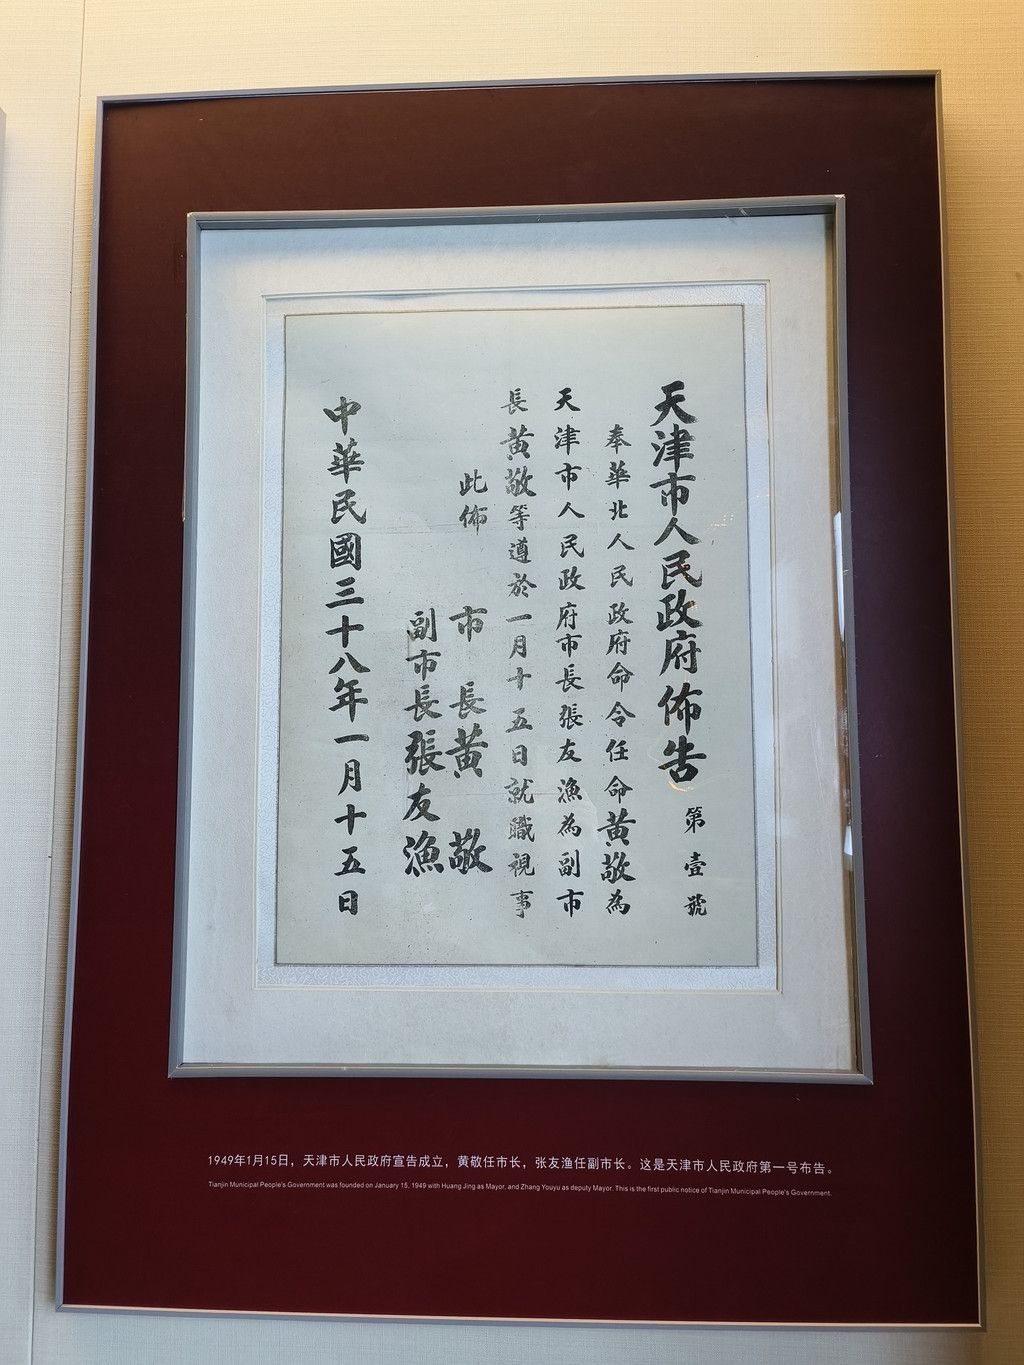 天津市人民政府佈告
第壹號
奉華北人民政府命令任命黄敬為
天津市人民政府市長張友漁為副市
長黄敬等遵於一月十五日就職視事
此佈
市長黄敬
副市長張友漁
中華民國三十八年一月十五日
1949年1月15日，天津市人民政府宣告成立，黄敬任市长，张友渔任副市长。这是天津市人民政府第一号布告。
Tianjin Municipal People's Government was founded on January 15, 1949 with Huang Jing as Mayor, and Zhang Youyu as deputy Mayor. This is the first public notice of Tianjin Municipal People's Government.